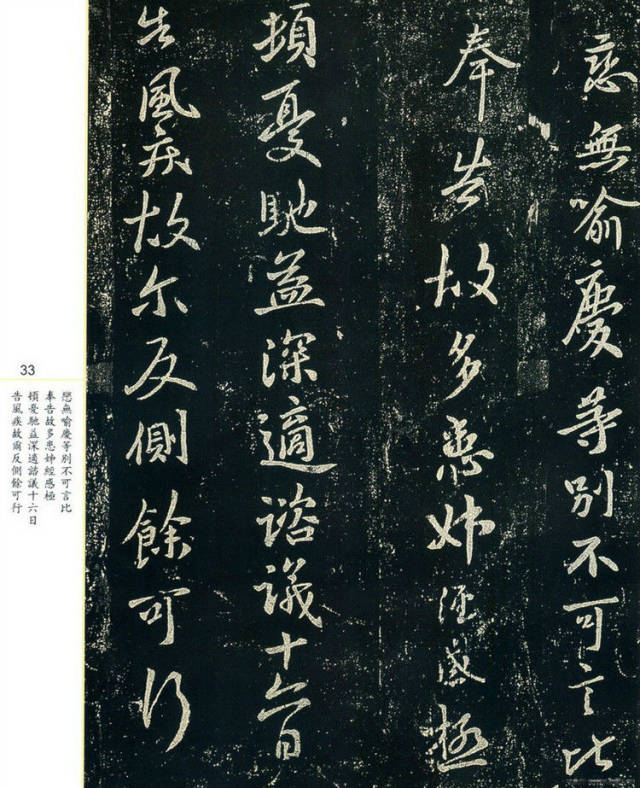 戀無喻慶等別不可言比
奉告故多患姊經感極
頓憂馳益深適諮議十六日
告風疾故尔反側餘可行
33
戀無喻慶等別不可言比
奉告故多患姊經感極
頓憂馳益深適諮議十六日
告風疾故爾反側餘可行